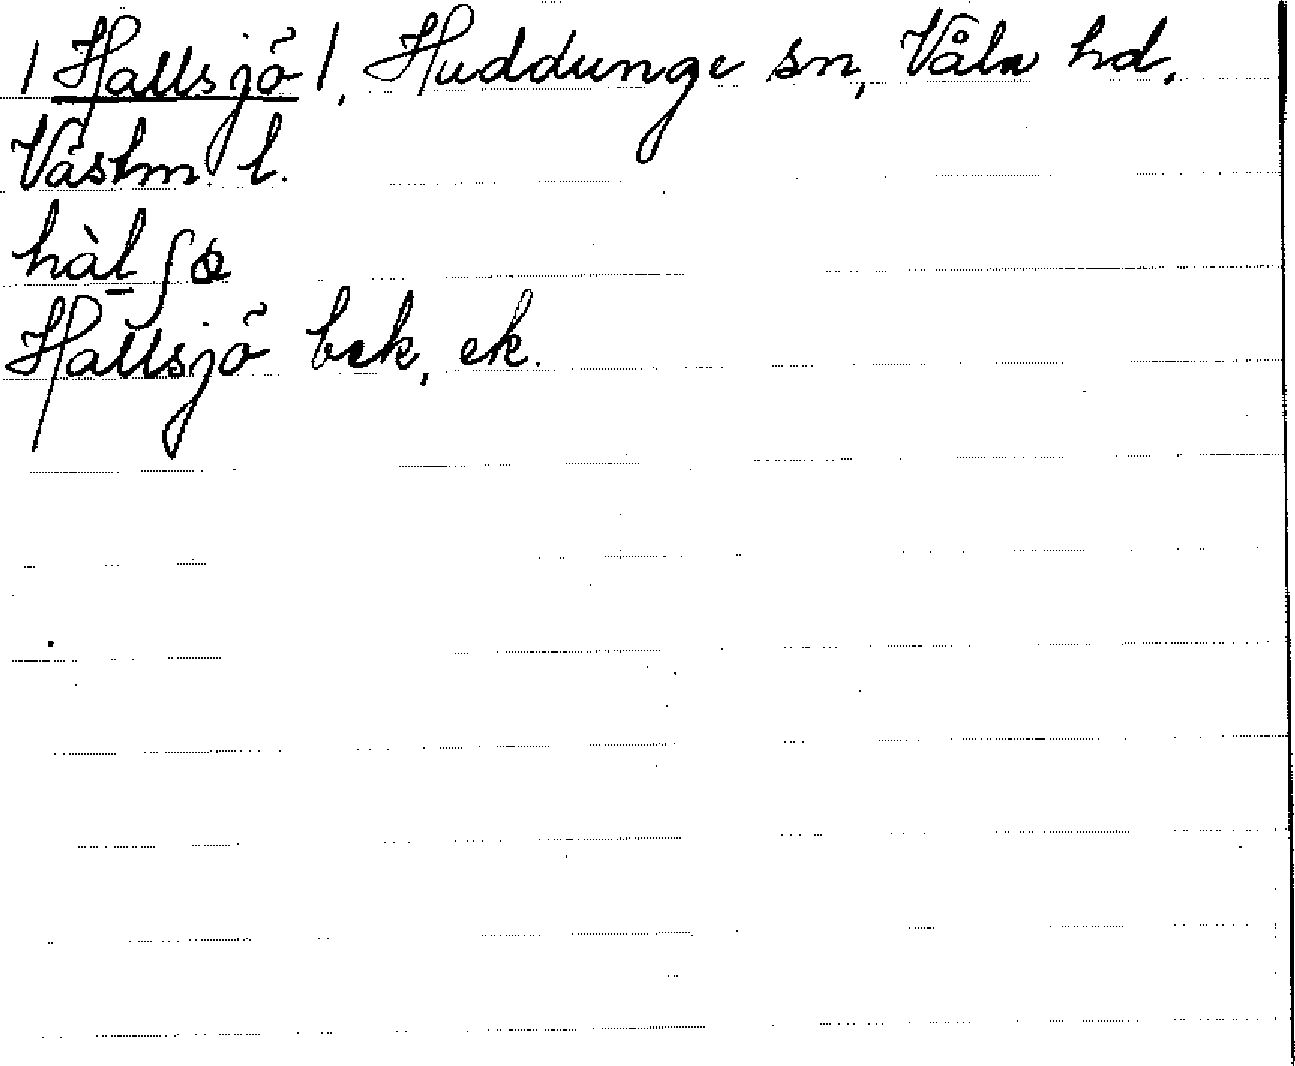 /Hallsjö/, Huddunge sn, Våla hd,
Västm l.
hàl̲ʃø
Hallsjö bek, ek.